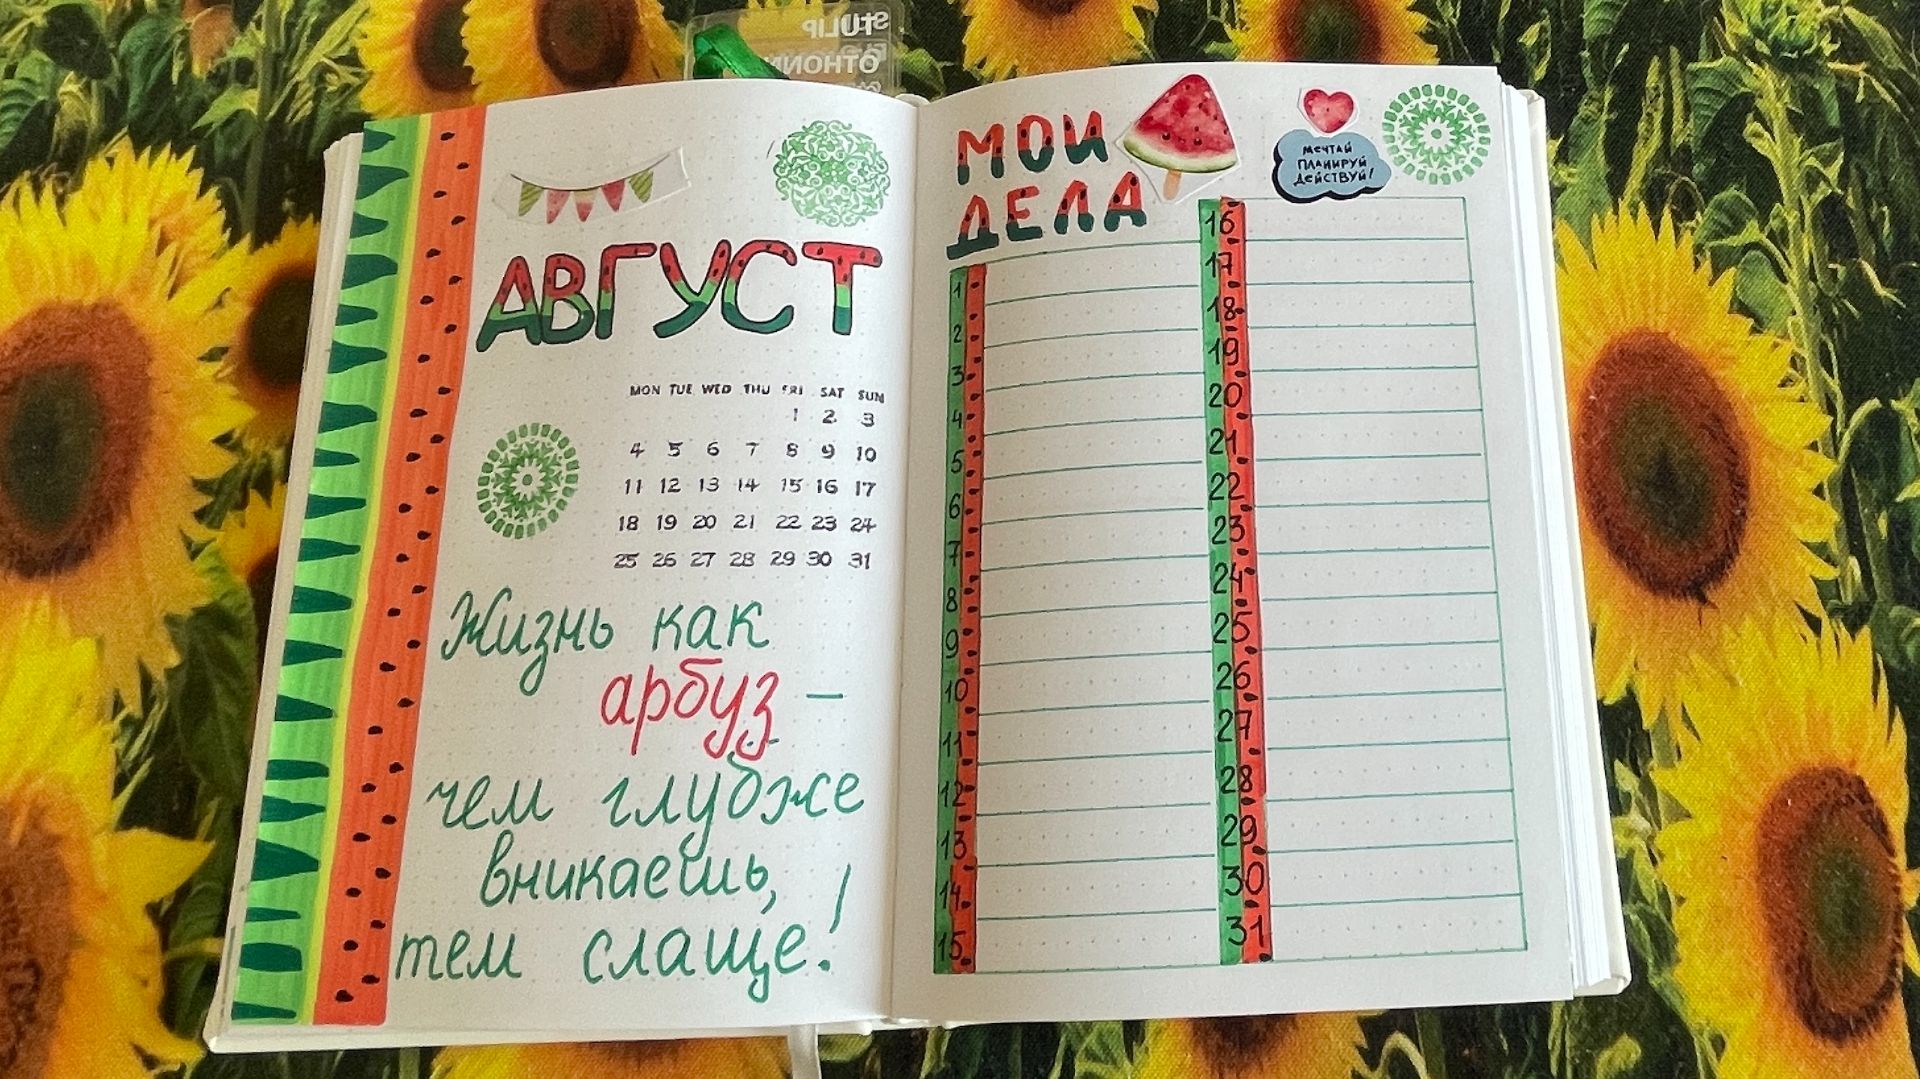 АВГУСТ
MON TUE WED THU FRI SAT SUN
1 2 3
4 5 6 7 8 9 10
11 12 13 14 15 16 17
18 19 20 21 22 23 24
25 26 27 28 29 30 31
Жизнь как
арбуз –
чем глубже
вникаешь,
тем слаще!
МОИ
ДЕЛА
мечтай
планируй
действуй!
1
2
3
4
5
6
7
8
9
10
11
12
13
14
15
16
17
18
19
20
21
22
23
24
25
26
27
28
29
30
31